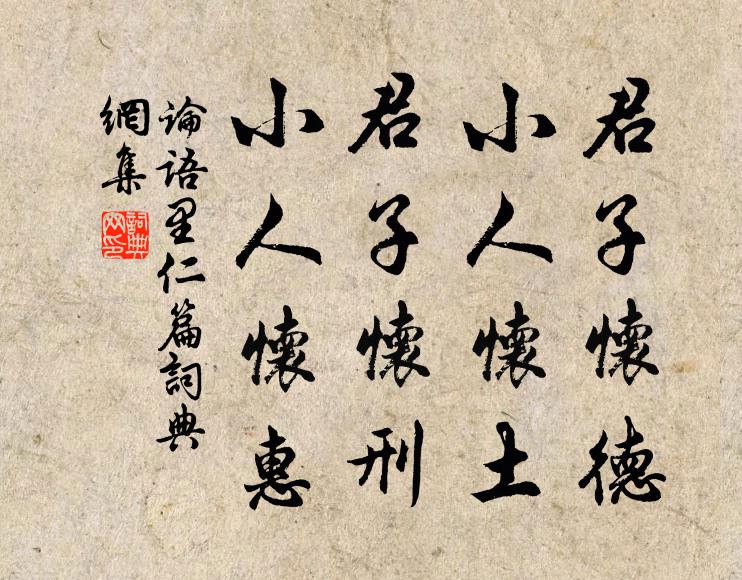 君子懷德
小人懷土
君子懷刑
小人懷惠
論語里仁篇詞典
網集
詞典
网印